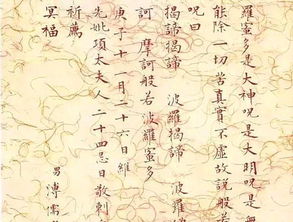 羅蜜多是大神呪是大明呪是無
能除一切苦真實不虛故說般若
呪曰
揭諦揭諦 波羅揭諦 波羅
訶 摩訶般若波羅蜜多
庚子十一月二十六日維
先妣項太夫人二十四忌日敬刺
祈薦
冥福
男溥儒